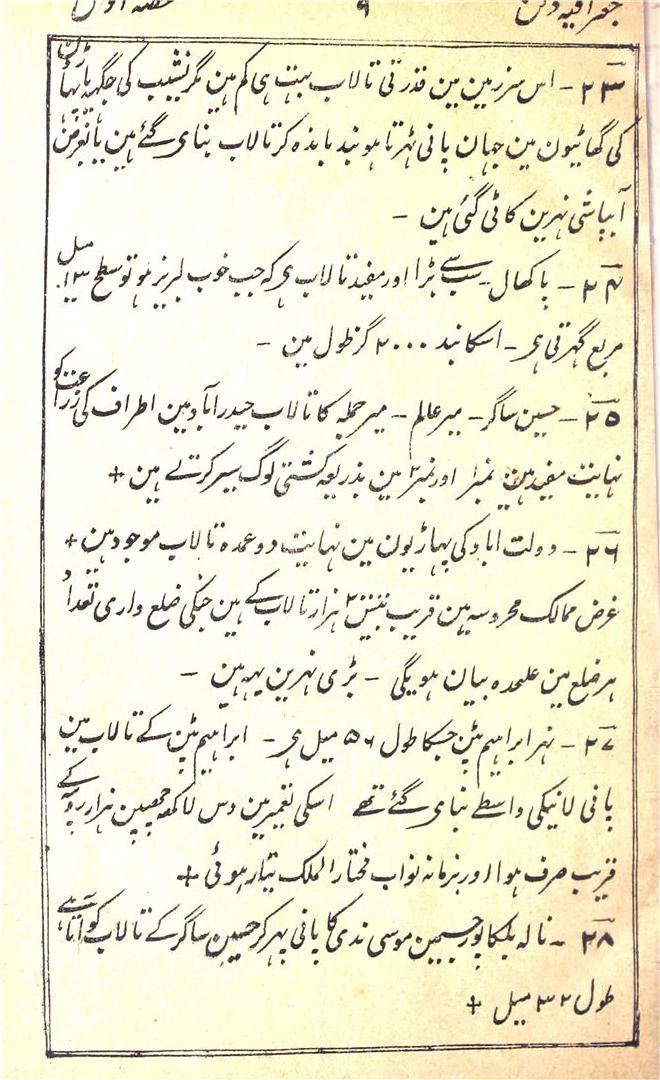 جغرافیہ دکن ۹ حصہ اول
۲۳ - اس سرزمین مین قدرتی تالاب بہت ہی کم ہین مگر نشیب کی جگہہ یا پہاڑون
کی گھاٹیون مین جہان پانی ٹہرتا ہو بند باندہ کر تالاب بنای گئے ہین یا بغرض
آبپاشی نہرین کاٹی گئی ہین -
۲۴ - پاکھال - سب سے بڑا اور مفید تالاب ہی کہ جب خوب لبریز ہو تو سطح ۱۳ میل
مربع گہرتی ہی - اسکا بند ۲۰۰۰ گز طول مین -
۲۵ - حسین ساگر - میر عالم - میر جملہ کا تالاب حیدرآباد مین اطراف کی زراعت کو
نہایت مفید ہین نمبر ۱ اور نمبر ۲ مین بذریعہ کشتی لوگ سیر کرتے ہین +
۲۶ - دولت اباد کی پہاڑیون مین نہایت دو عمدہ تالاب موجود ہین +
غرض ممالک محروسہ مین قریب ہزار تالاب کے ہین جنکی ضلع واری تعداد
ہر ضلع مین علحدہ بیان ہویگی - بڑی نہرین یہہ ہین -
۲۷ - نہر ابراہیم پٹن جسکا طول ۵۶ میل ہی - ابراہیم پٹن کے تالاب مین
پانی لانیکی واسطے بنای گئے تھے اسکی تعمیر مین دس لاکھہ ہزار روپیہ کے
قریب صرف ہوا اور بزمانہ نواب مختار الملک تیار ہوئی +
۲۸ - نالہ بلکاپور جسمین موسی ندی کا پانی پہر کر حسین ساگر کے تالاب کو آتا ہے
طول ۳۲ میل +